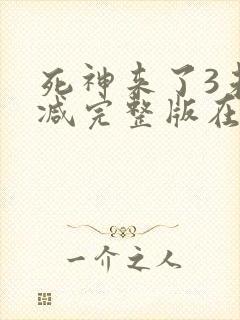 死神来了3未
减完整版在
一介之人